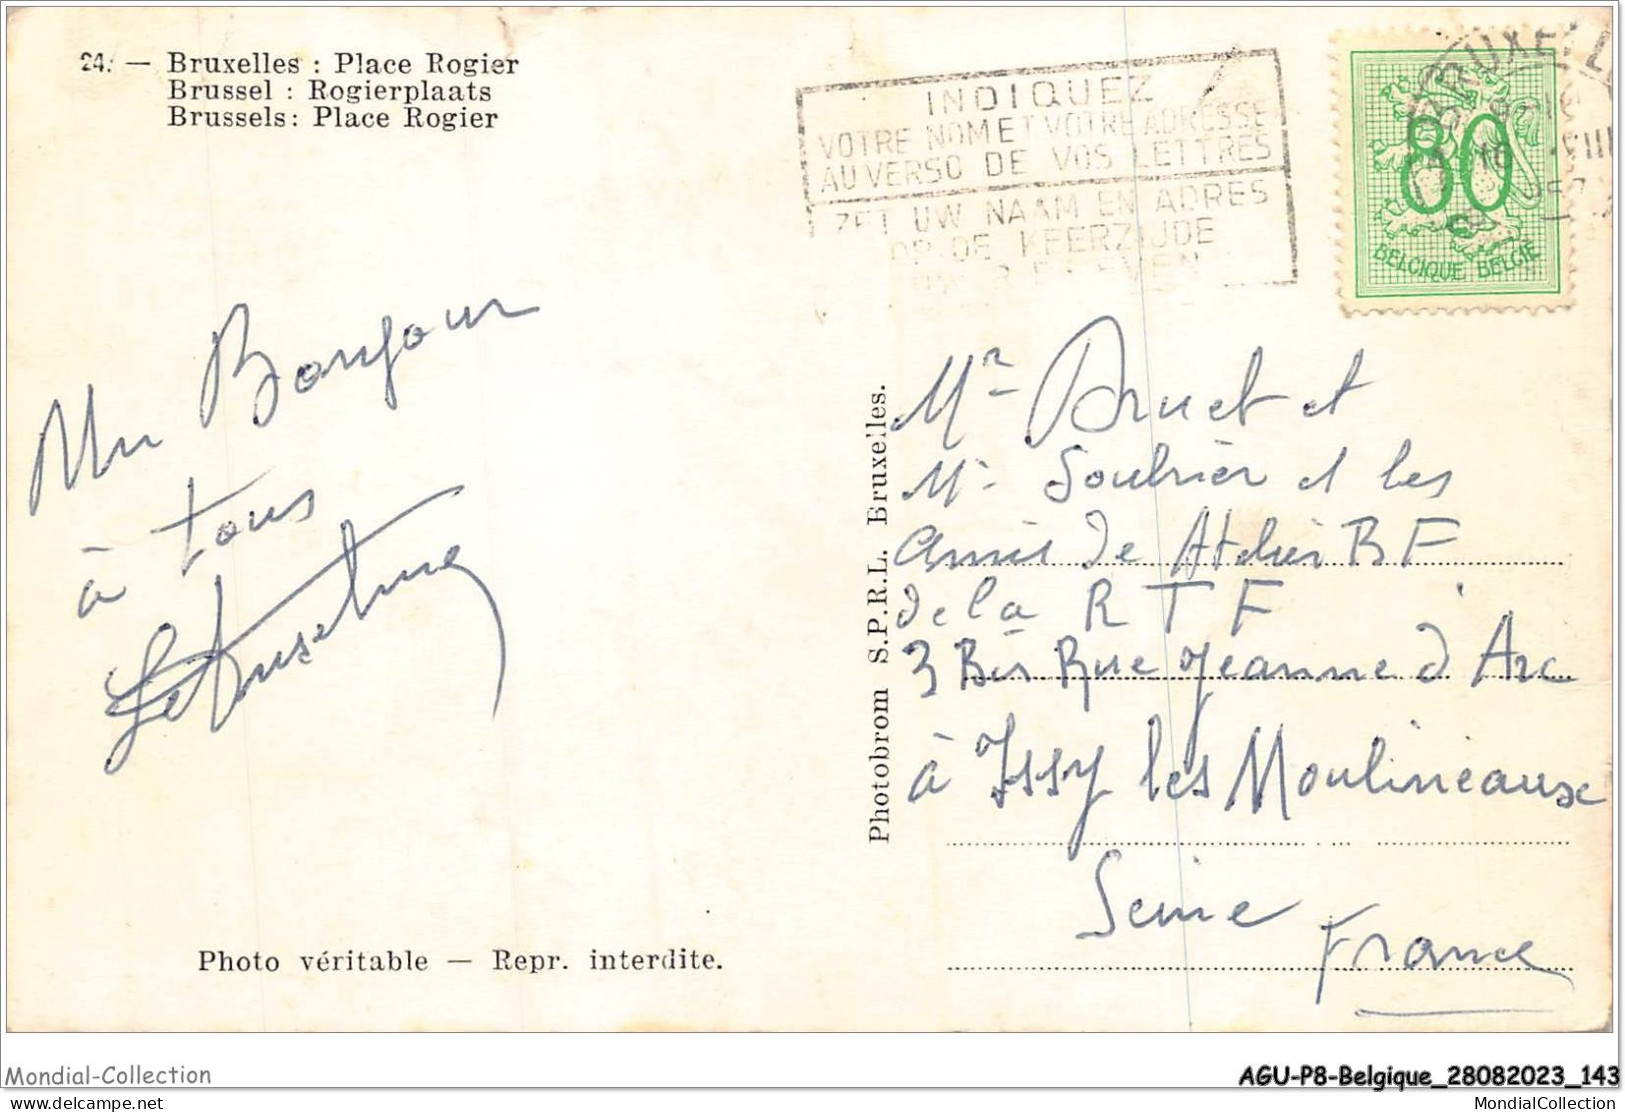 24. — Bruxelles : Place Rogier
Brussel : Rogierplaats
Brussels : Place Rogier
INDIQUEZ
VOTRE NOM ET VOTRE ADRESSE
AU VERSO DE VOS LETTRES
ZET UW NAAM EN ADRES
OP DE KEERZIJDE
BRUXELL
80
BELGIQUE BELGIË
Un Bonjour
à tous
Photobrom S.P.R.L. Bruxelles.
Mr Bruet et
Mr Soubrier et les
amis de Atelier BF
de la R T F
3 Bis Rue Jeanne d'Arc
à Issy les Moulineaux
Seine
France
Photo véritable — Repr. interdite.
Mondial-Collection
delcampe.net
AGU-P8-Belgique_28082023_143
MondialCollection